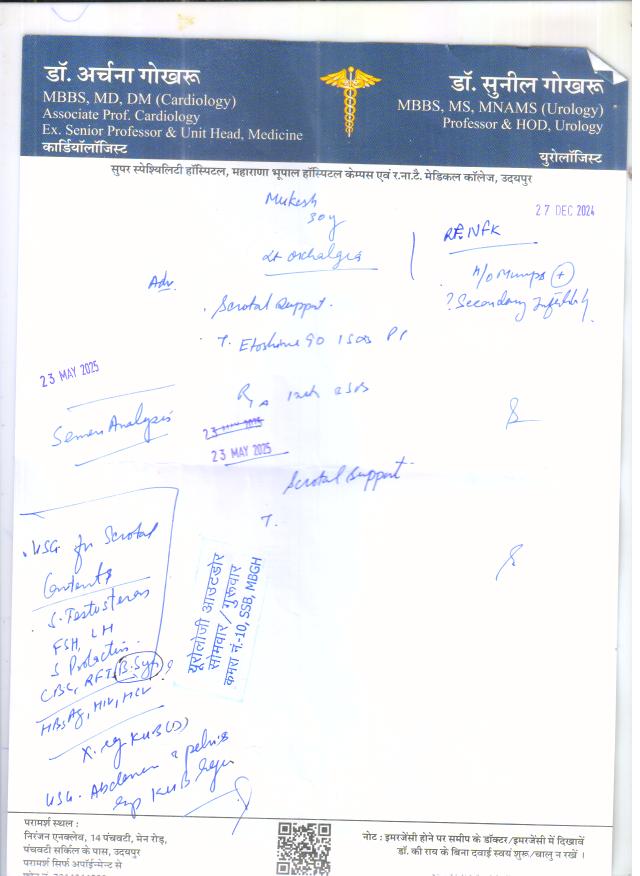 डॉ. अर्चना गोखरू
MBBS, MD, DM (Cardiology)
Associate Prof. Cardiology
Ex. Senior Professor & Unit Head, Medicine
कार्डियॉलॉजिस्ट
डॉ. सुनील गोखरू
MBBS, MS, MNAMS (Urology)
Professor & HOD, Urology
युरोलॉजिस्ट
सुपर स्पेश्यिलिटी हॉस्पिटल, महाराणा भूपाल हॉस्पिटल केम्पस एवं र.ना.टै. मेडिकल कॉलेज, उदयपुर
27 DEC 2024
Mukesh
30y
Lt orchalgia
H/O Mumps +
? Secondary Infertility
Adv.
Scrotal Support.
T. Etoshine 90 1 SOS
23 MAY 2025
Semen Analysis
23 MAY 2025
23 MAY 2025
Scrotal Support
T.
USG for Scrotal
Contents
S. Testosteron
FSH, LH
S Prolactin
CBC, RFT, B. Sug ?
HBsAg, HIV, HCV
X. ray KUB (D)
USG. Abdomen & pelvis
KUB region
यूरोलोजी आउटडोर
सोमवार/गुरूवार
कमरा नं.-10, SSB, MBGH
परामर्श स्थल :
निरंजन एनक्लेव, 14 पंचवटी, मेन रोड़,
पंचवटी सर्किल के पास, उदयपुर
परामर्श सिर्फ अपॉईन्मेन्ट से
नोट : इमरजेंसी होने पर समीप के डॉक्टर/इमरजेंसी में दिखावें
डॉ. की राय के बिना दवाई स्वयं शुरू/चालु न रखें ।